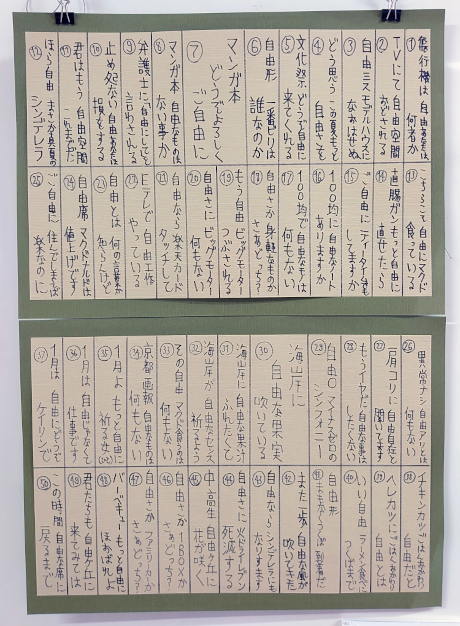 ① 飛行機は 自由あるなは 何者か
② TVにて 自由空間 などどれる
③ 自由ミスモデルハウスに なかはせぬ
④ どう思う この夏もっと 自由さを
⑤ 文化祭 どうぞ自由に 来てくれる
⑥ 自由形 一番ビリは 誰なのか
⑦ マンガ本 どうぞよろしく ご自由に
⑧ マンガ本 自由なものは ない事か
⑨ 弁護士に 自由にしてと 言わされる
⑩ 止め処ない 自由あるは 損をする
⑪ 君はもう 自由空間
⑫ ほら自由 シンデレラ
⑬ こちらこそ 自由にマクド 食っている
⑭ 直腸ガン もっと自由に 直せたら
⑮ ご自由に ティータイムも してますか
⑯ 100均に 自由なノート ありますか
⑰ 100均で 自由なものは 何もない
⑱ 自由さか 身軽なものか さあどっち?
⑲ もう自由 ビッグモーター つぶされる
⑳ 自由さに ビッグモーター 何もない
㉑ 自由なら 楽天カード タッチして
㉒ Eテレで 自由工作 やっている
㉓ 自由とは 何の言葉か 知らんけど
㉔ 自由席 マクドナルドは 値上げです
㉕ ご自由に 住んでしまえば 楽なのに
㉖ 黒崎ナシ 自由アリとは 何もない
㉗ 肩コリに 自由自在と 聞いてます
㉘ もうイヤだ 自由な事は したくない
㉙ 自由〇 マイナスゼロの シンフォニー
㉚ 海岸に 自由な果実 吹いている
㉛ 海岸に 自由な果汁 ふれたくて
㉜ 海岸が 自由なセンス 祈るよう
㉝ その自由 マクド食うのは 何もない
㉞ 京都画報 自由なものは 何もない
㉟ 1月よ もっと自由に 祈る女
㊱ 1月は 自由じゃなくて 仕事です
㊲ 1月は 自由にどうぞ ケイリンで
㊳ チキンカツ ごはんおかわり 自由だと
㊴ ヘレカツに ごはんおかわり 自由とは
㊵ いい自由 ラーメン食べに つくばまで
㊶ 自由形 到着だ
㊷ また正か 自由な風が 吹いてきた
㊸ 自由なら シンデレラにも なりすます
㊹ 自由さに イトウドレブン 死滅する
㊺ 中高生 自由ヶ丘に 花が咲く
㊻ 自由さか 1BOXか さあどっち?
㊼ 自由さか ファミリーカーか さあどっち?
㊽ バーベキュー もっと自由に ほおばれよ
㊾ 君たちも 自由ヶ丘に 来てみては
㊿ この時間 自由な席に 戻るまで